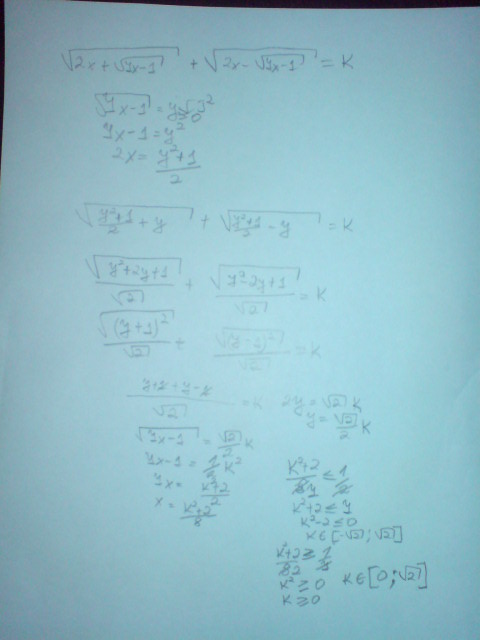 √(2x+√(4x-1)) + √(2x-√(4x-1)) = K
√(4x-1) = y ≥ 0
4x-1 = y²
2x = (y²+1)/2
√((y²+1)/2 + y) + √((y²+1)/2 - y) = K
√(y²+2y+1)/√2 + √(y²-2y+1)/√2 = K
√((y+1)²)/√2 + √((y-1)²)/√2 = K
(y+1+y-1)/√2 = K 2y = √2 K
y = √2/2 K
√(4x-1) = √2/2 K
4x-1 = 1/2 K²
4x = (K²+2)/2
x = (K²+2)/8
(K²+2)/8 ≤ 1/2
K²+2 ≤ 4
K²-2 ≤ 0
K∈[-√2; √2]
K²≥0 K∈[0; √2]
K≥0